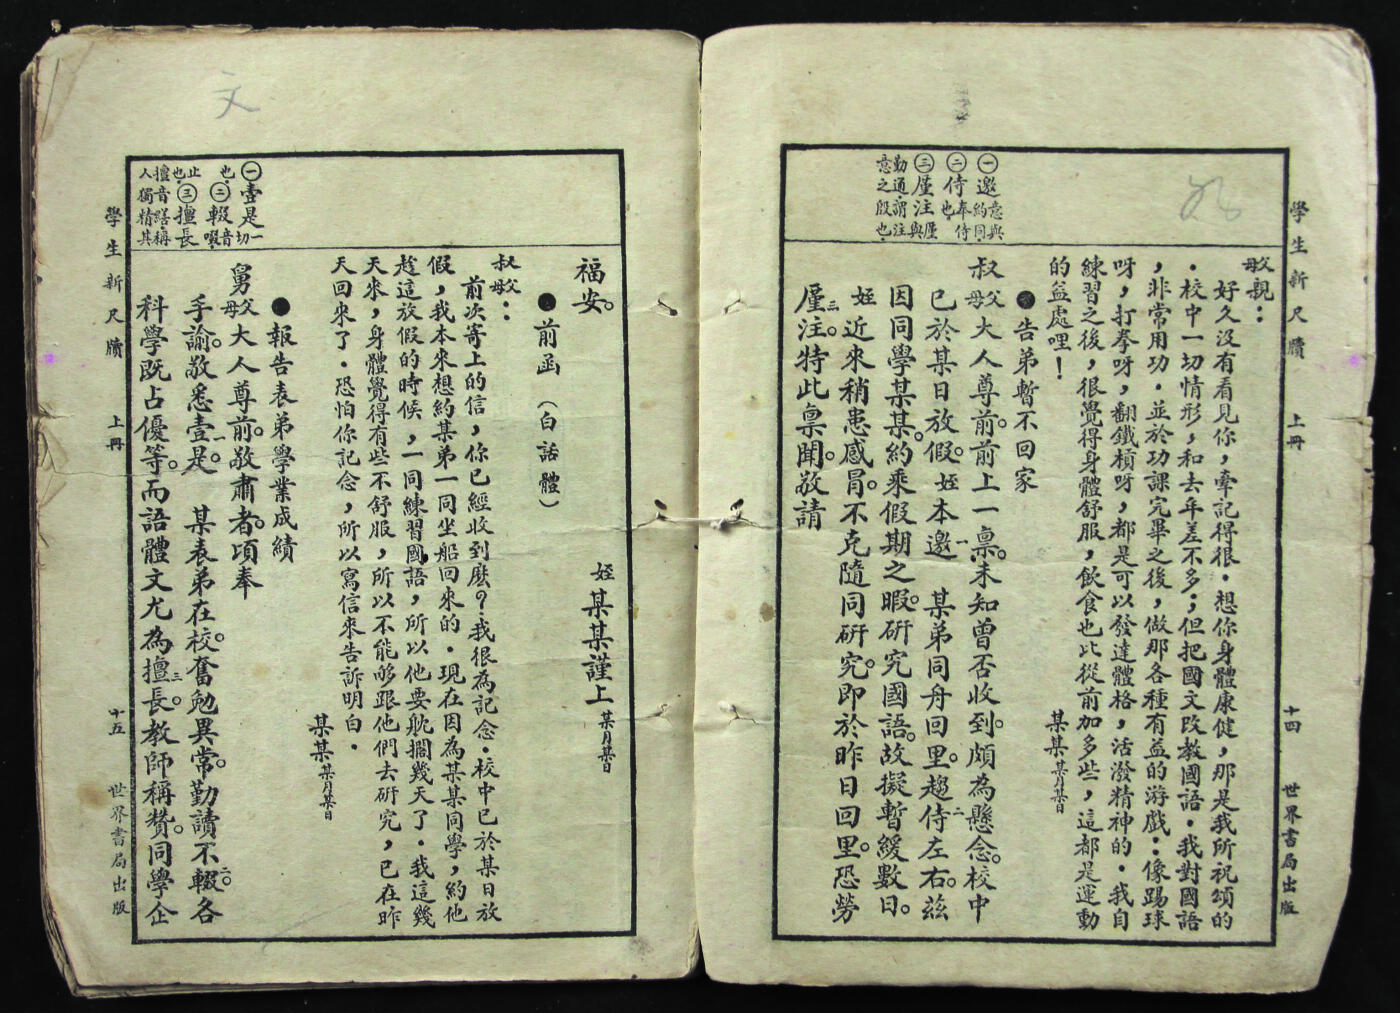 學生新尺牘 上冊 十四 世界書局出版
㊀邀意與約同
㊁侍奉侍也
㊂廑注廑與勤通謂注意之殷也
父母親：
好久沒有看見你，牽記得很．想你身體康健，那是我所祝頌的
．校中一切情形，和去年差不多；但把國文改教國語．我對國語
，非常用功．並於功課完畢之後，做那各種有益的游戲：像踢球
呀，打拳呀，翻鐵槓呀，都是可以發達體格，活潑精神的．我自
練習之後，很覺得身體舒服，飲食也比從前加多些，這都是運動
的益處哩！
某某某月某日
●告弟暫不回家
叔父母大人尊前。前上一禀。未知曾否收到。頗為懸念。校中
已於某日放假。姪本邀一 某弟同舟回里。趨侍二左右。茲
因同學某某。約乘假期之暇。研究國語。故擬暫緩數日。
姪近來稍患感冒。不克隨同研究。即於昨日回里。恐勞
廑注三。特此禀聞。敬請
㊀壹是一切也
㊁輟音啜止也
㊂擅長擅音繕稱人獨精其
福安。
姪某某謹上某月某日
●前函（白話體）
叔父母：
前次寄上的信，你已經收到麽？我很為記念．校中已於某日放
假，我本來想約某弟一同坐船回來的．現在因為某某同學，約他
趁這放假的時候，一同練習國語，所以他要躭擱幾天了．我這幾
天來，身體覺得有些不舒服，所以不能够跟他們去研究，已在昨
天回來了．恐怕你記念，所以寫信來告訴明白．
某某某月某日
●報告表弟學業成績
舅父母大人尊前。敬肅者。頃奉
手諭。敬悉壹是一。 某表弟在校。奮勉異常。勤讀不輟二。各
科學既占優等。而語體文尤為擅長三。教師稱贊。同學企
學生新尺牘 上冊 十五 世界書局出版
文